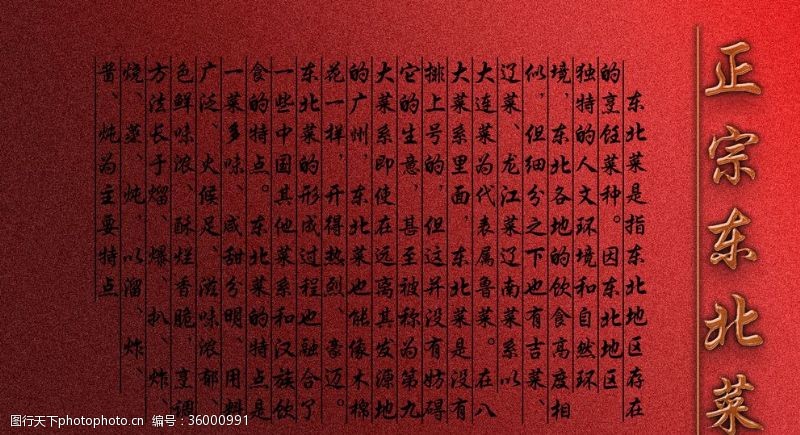 正宗东北菜
东北菜是指东北地区存在
的烹饪菜种。因东北地区
独特的人文环境和自然环
境，东北各地的饮食高度相
似，但细分之下也有吉菜、
辽菜、龙江菜辽南菜系以
大连菜为代表属鲁菜。在八
大菜系里面，东北菜是没有
排上号的，但这并没有妨碍
它的生意，甚至被称为第九
大菜系即使在远离其发源地
的广州，东北菜也能像木棉
花一样，开得热烈、豪迈。
东北菜的形成过程也融合了
一些中国其他菜系和汉族饮
食的特点。东北菜的特点是
一菜多味、咸甜分明、用料
广泛、火候足、滋味浓郁、
色鲜味浓、酥烂香脆，烹调
方法长于熘、爆、扒、炸、
烧、蒸、炖，以溜、炸、
酱、炖为主要特点
图行天下photophoto.cn 编号：36000991